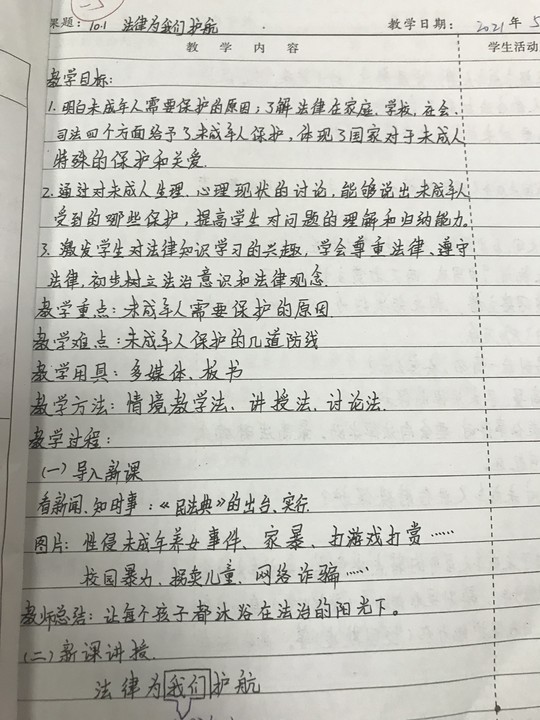 课题: 10.1 法律为我们护航 教学日期: 2021年5
教 学 内 容 学生活动
教学目标:
1. 明白未成年人需要保护的原因;了解法律在家庭、学校、社会、
司法四个方面给予了未成年人保护,体现了国家对于未成人
特殊的保护和关爱.
2. 通过对未成人生理、心理现状的讨论,能够说出未成年人
受到的哪些保护,提高学生对问题的理解和归纳能力。
3. 激发学生对法律知识学习的兴趣,学会尊重法律、遵守
法律,初步树立法治意识和法律观念.
教学重点:未成年人需要保护的原因.
教学难点:未成年人保护的几道防线
教学用具:多媒体、板书
教学方法:情境教学法、讲授法、讨论法.
教学过程:
(一)导入新课
看新闻、知时事:《民法典》的出台、实行.
图片:性侵未成年养女事件、家暴、打游戏打赏……
校园暴力、拐卖儿童、网络诈骗……
教师总结:让每个孩子都沐浴在法治的阳光下。
(二)新课讲授.
法律为我们护航